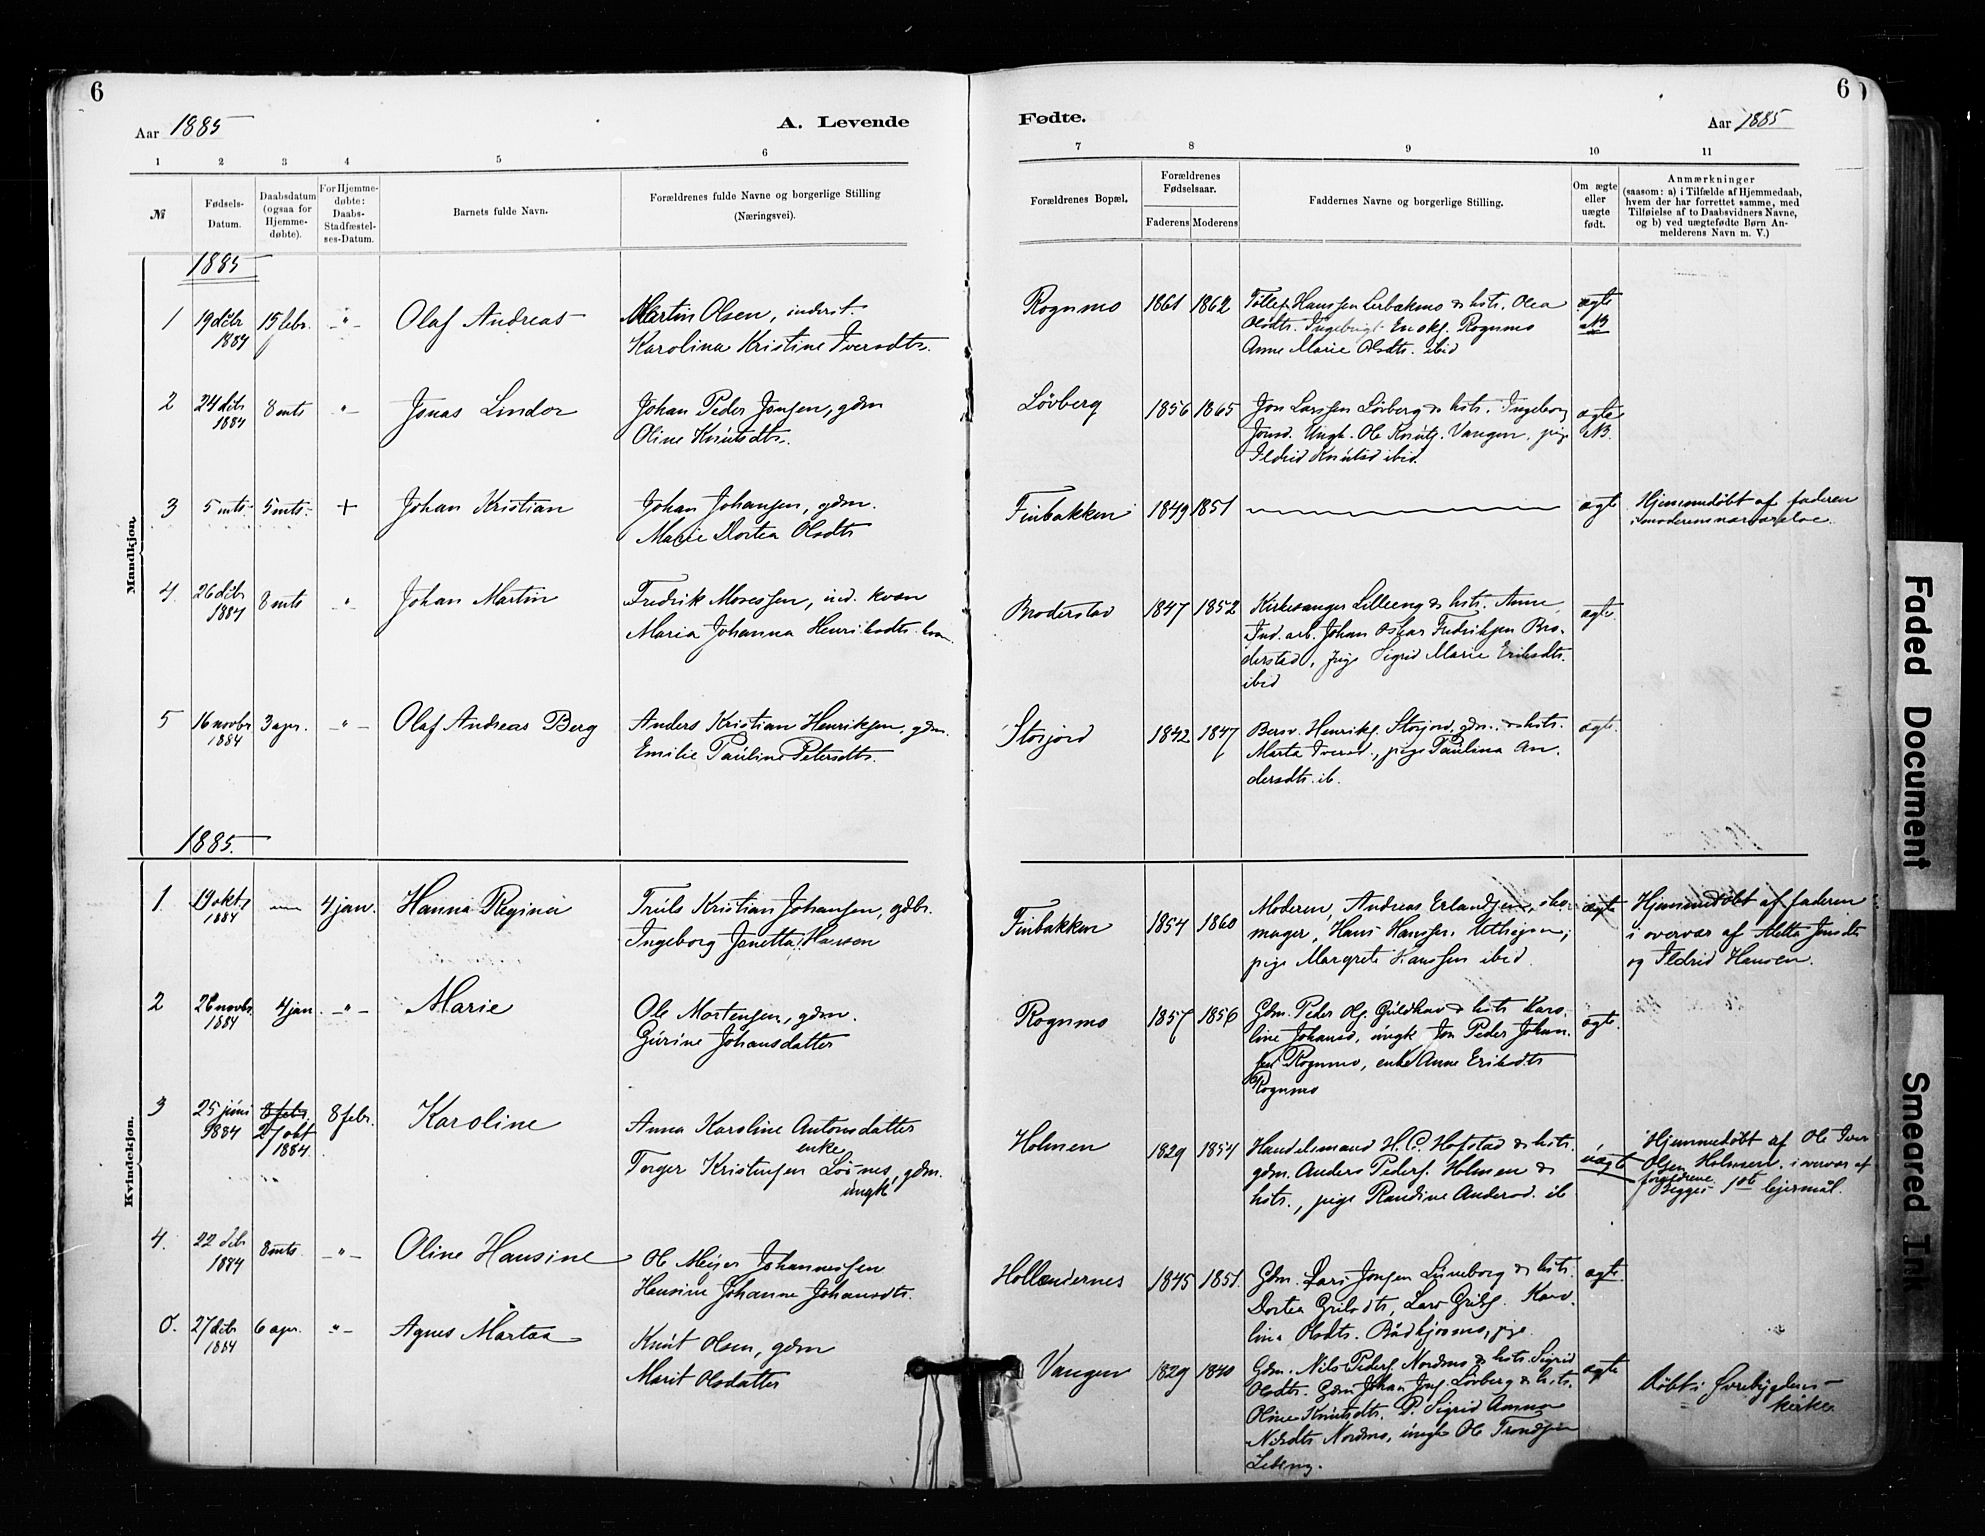 6
6
Aar 1885
A. Levende
Fødte.
Aar 1885
1 2 3 4 5 6
7 8 9 10 11
№
Fødsels-
Datum.
Daabsdatum
(ogsaa for
Hjemme-
døbte).
For Hjemme-
døbte:
Daabs-
Stadfæstel-
ses-Datum.
Barnets fulde Navn.
Forældrenes fulde Navne og borgerlige Stilling
(Næringsvei).
Forældrenes Bopæl.
Forældrenes
Fødselsaar.
Faderens Moderens
Faddernes Navne og borgerlige Stilling.
Om ægte
eller
uægte
født.
Anmærkninger
(saasom: a) i Tilfælde af Hjemmedaab,
hvem der har forrettet samme, med
Tilføielse af to Daabsvidners Navne,
og b) ved uægtefødte Børn An-
melderens Navn m. V.)
Mandkjøn.
1885
1 19 dcbr 1884 15 febr. -"- Olaf Andreas
Martin Olsen, inderst.
Karolina Kristine Iversdtr.
Rognmo 1861 1862
Tollef Hanssen Lerbækmo & hstr. Olea
Olsdtr. Ingebrigt Enokss. Rognmo
Anne Marie Olsdtr. ibid
ægte
NB
2 24 dcbr 1884 8 mts -"- Jonas Lindor
Johan Peder Jonsen, gdm
Oline Knutsdtr.
Løvberg 1856 1865
Jon Larssen Løvberg & hstr. Ingeborg
Jonsd. Ungk. Ole Knuts. Vangen, pige
Ildrid Knutsd ibid.
ægte
NB.
3 5 mts 5 mts. + Johan Kristian
Johan Johansen, gdm.
Marie Dortea Olsdtr
Finbakken 1849 1851
ægte
Hjemmedøbt af faderen
i moderens nærværelse.
4. 26 dcbr 1884 8 mts " Johan Martin
Fredrik Mosessen, ind. kvæn
Maria Johanna Henriksdtr.
Broderstad 1847 1852
Kirkesanger Lilleeng & hstr. Anne,
Ind. arb. Johan Oskar Fredriksen Bro-
derstad, pige Sigrid Marie Eriksdtr.
ibid
ægte
5 16 novbr 1884 3 apr. -"- Olaf Andreas Berg
Anders Kristian Henriksen, gdm.
Emilie Pauline Petersdtr.
Storjord 1842 1847
Bersv. Henriks. Storjord, gdm. & hstr.
Marta Iversd., pige Paulina An-
dersdtr. ib.
ægte
Kvindekjøn.
1885.
1. 19 oktr 1884 — 4 jan. Hanna Regina
Truls Kristian Johansen, gdbr.
Ingeborg Janetta Hansen
Finbakken 1854 1860
Moderen, Andreas Erlandsen, sko-
mager, Hans Hanssen
pige Margrete Hanssen ibid.
ægte
Hjemmedøbt af faderen
i overvær af Metta Jensdtr
og Ildrid Hansen.
2 26 novbr. 1884 4 jan -"- Marie
Ole Mortensen, gdm.
Gurine Johansdatter
Rognmo 1857 1856
Gdm. Peder Ols. Guldhav & hstr Karo-
line Johansd, ungk Jon Peder Johan-
sen Rognmo, enke Anne Eriksdtr
Rognmo
ægte.
3 25 juni 1884 8 febr. 27 okt 1884. 8 febr. Karoline
Anna Karoline Antonsdatter
enke
Torger Kristensen Løsnes, gdm.
ungk
Holmen 1829 1854
Handelsmand H. C. Hofstad & hstr.
gdm. Anders Peders. Holmen &
hstr., pige Randine Andersd. ib
uægte
Hjemmedøbt af Ole Iver
Olsen Holmen. i overvær af
forældrene.
Begges 1ste lejermål.
4. 22 dcbr 1884 8 mts. -"- Oline Hansine
Ole Meyer Johannessen
Hansine Johanne Johansdtr.
Hollendernes 1845 1851.
Gdm. Lars Jonsen Luneborg & hstr.
Dortea Grilsdtr, Lars Grils. Karo-
lina Olsdtr. Bådkjosmo, pige
ægte.
5. 27 dcbr 1884 6 apr. -"- Agnes Martea
Knut Olsen, gdm
Marit Olsdatter
Vangen 1829 1840
Gdm. Nils Peders. Nordmo & hstr. Sigrid
Olsdtr. Gdm Johan Jons. Løvberg & hstr.
Oline Knutsdtr. P. Sigrid Anna
Nilsdtr Nordmo, ungk Ole Trondsen
ægte
Døbt i Øvrebygdens
kirke
Faded Document
Smeared Ink